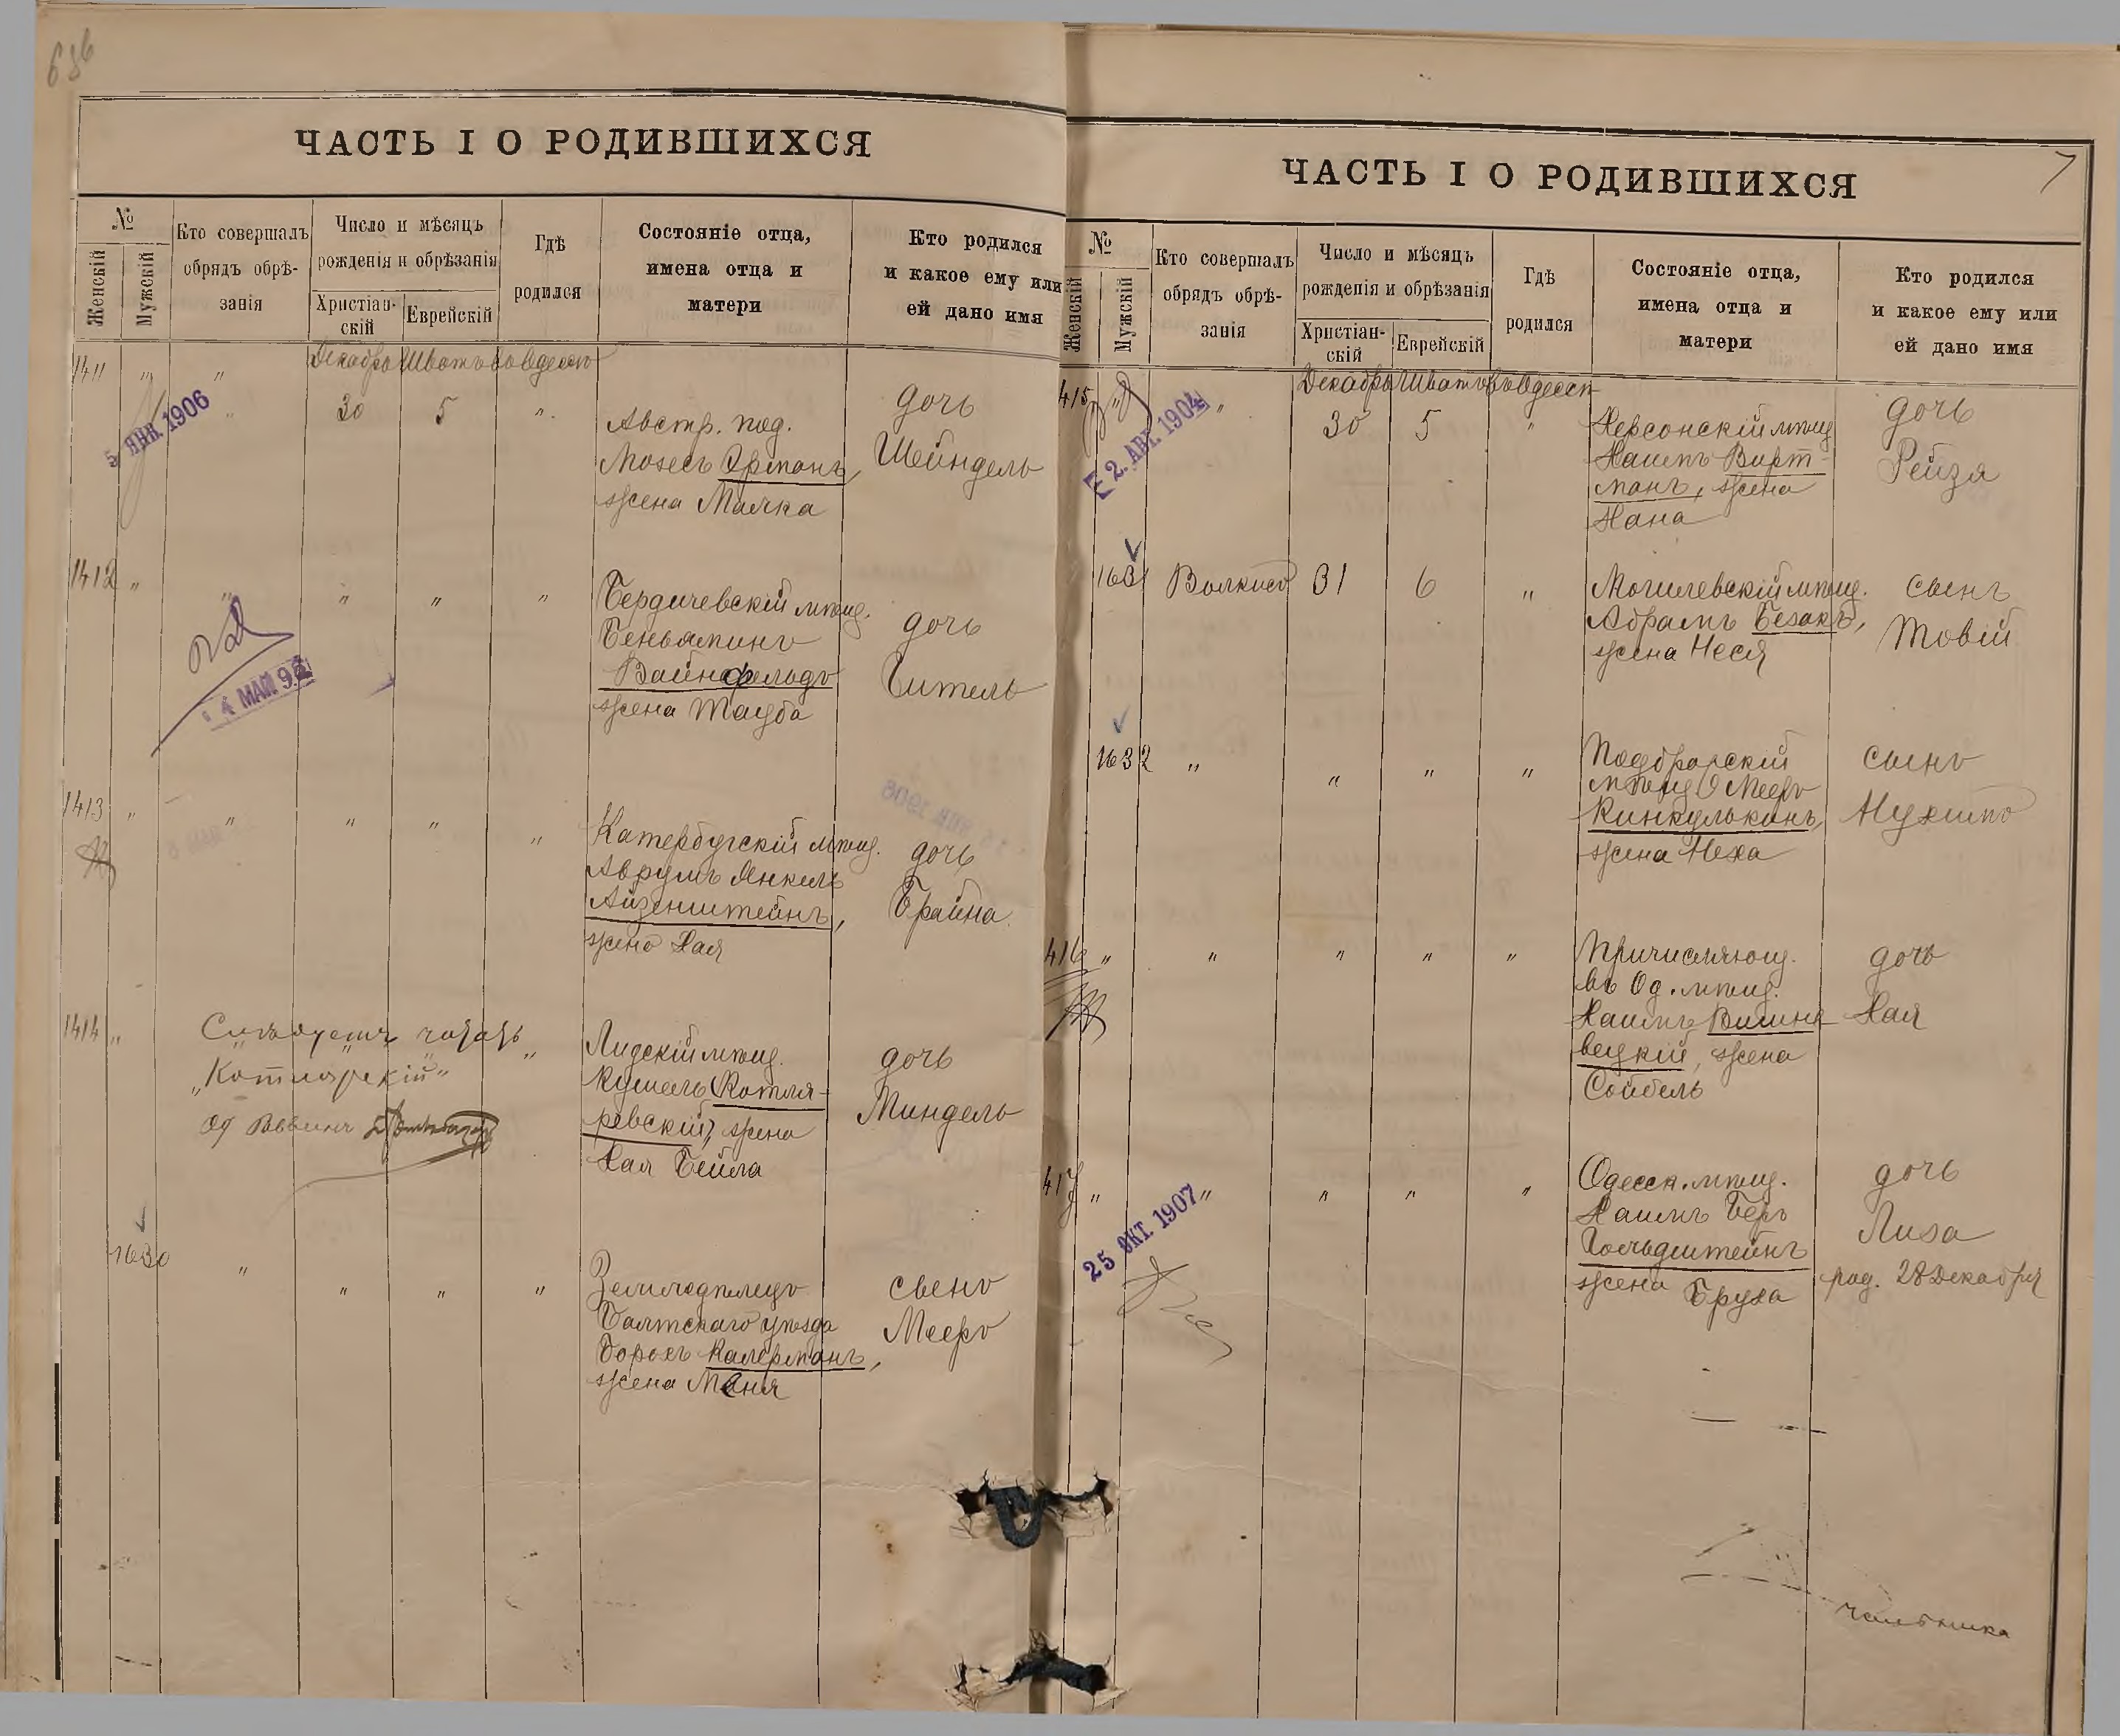 636
ЧАСТЬ I О РОДИВШИХСЯ
№
Женскій
Мужскій
Кто совершалъ
обрядъ обрѣ-
занія
Число и мѣсяцъ
рожденія и обрѣзанія
Христіан-
скій
Еврейскій
Гдѣ
родился
Состояніе отца,
имена отца и
матери
Кто родился
и какое ему или
ей дано имя
Декабрь Шватъ Въ Одессѣ
1411 " "
5 ЯНВ. 1906
" 30 5 "
Австр. под.
Мозесъ Ормань,
жена Малка
дочь
Шейндель
1412 " " " " "
14 МАЯ 92
Бердичевскій мѣщ.
Беньяминъ
Вайнфельдъ
жена Тауба
дочь
Гитель
1413 " " " " "
Катербугскій мѣщ.
Аврумъ Янкель
Айзенштейнъ,
жена Хая
дочь
Брайна
1414 " " " " "
"Котлярскій"
Од Раввинъ
Лидскій мѣщ.
Кушель Котля-
ревскій, жена
Хая Бейла
дочь
Миндель
1630 " " " "
Земледѣлецъ
Балтскаго уѣзда
Борохъ Калерманъ,
жена Меня
сынъ
Мееръ
7
ЧАСТЬ I О РОДИВШИХСЯ
№
Женскій
Мужскій
Кто совершалъ
обрядъ обрѣ-
занія
Число и мѣсяцъ
рожденія и обрѣзанія
Христіан-
скій
Еврейскій
Гдѣ
родился
Состояніе отца,
имена отца и
матери
Кто родился
и какое ему или
ей дано имя
Декабрь Шватъ Въ Одессѣ
415 " "
2. АВГ. 1904
30 5 "
Херсонскій мѣщ
Хаимъ Вирт-
манъ, жена
Хана
дочь
Рейзя
1631 31 6 "
Могилевскій мѣщ.
Абрамъ Безакъ,
жена Неся
сынъ
Товій
1632 " " " "
мѣщ Мееръ
Кинкулькинъ,
жена Неха
сынъ
Нухимъ
416 " " " " "
Причисляющ.
въ Од. мѣщ.
Хаимъ Вишне
вецкій, жена
Сойбель
дочь
Хая
417 " " " " "
25 ОКТ. 1907
Одесск. мѣщ.
Хаимъ Беръ
Гольдштейнъ
жена Бруха
дочь
Лиза
род. 28 Декабря